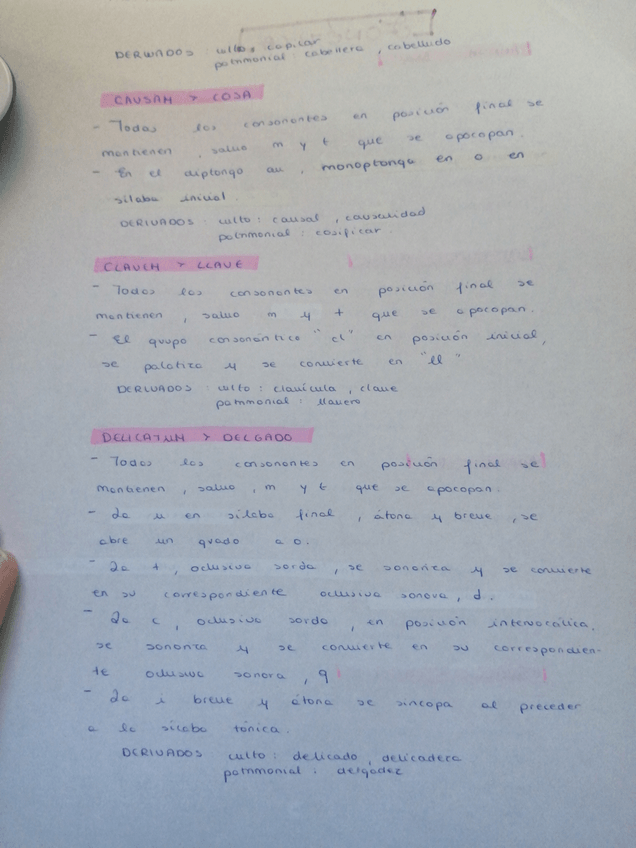 DERIVADOS : culto : capilar
patrimonial : cabellera , cabelludo
CAUSAM > COSA
- Todas las consonantes en posición final se
mantienen , salvo m y t que se apocopan.
- En el diptongo au , monoptonga en o en
sílaba inicial .
DERIVADOS : culto : causal , causalidad
patrimonial : cosificar .
CLAVEM > LLAVE
- Todas las consonantes en posición final se
mantienen , salvo m y t que se apocopan.
- El grupo consonántico "cl" en posición inicial,
se palatiza y se convierte en "ll"
DERIVADOS : culto : clavícula , clave
patrimonial : llavero
DELICATUM > DELGADO
- Todas las consonantes en posición final se
mantienen , salvo , m y t que se apocopan.
- La u en sílaba final , átona y breve , se
abre un grado a o.
- La t , oclusiva sorda , se sonoriza y se convierte
en su correspondiente oclusiva sonora , d .
- La c , oclusiva sorda , en posición intervocálica,
se sonoriza y se convierte en su correspondien-
te oclusiva sonora , g
- La i breve y átona se sincopa al preceder
a la sílaba tónica .
DERIVADOS culto : delicado , delicadeza
patrimonial : delgadez